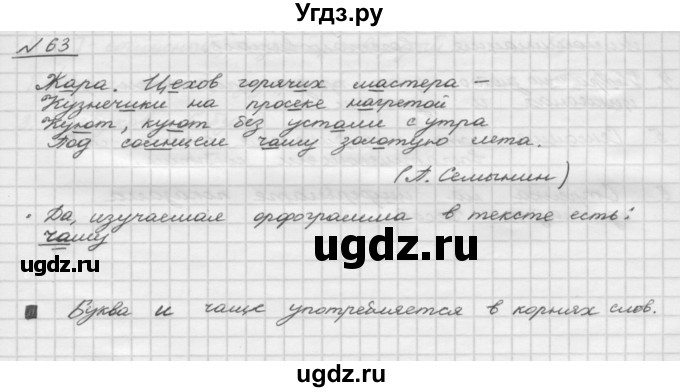 Угдз.ру
№ 63
Жара. Цехов горячих мастера –
Кузнечики на просеке нагретой
Куют, куют без устали с утра
Под солнцем чашу золотую лета.
(А. Семынин)
• Да, изучаемая орфограмма в тексте есть:
чашу
ugdz.ru ugdz.ru
Буква и чаще употребляется в корнях слов.
ugdz.ru ugdz.ru